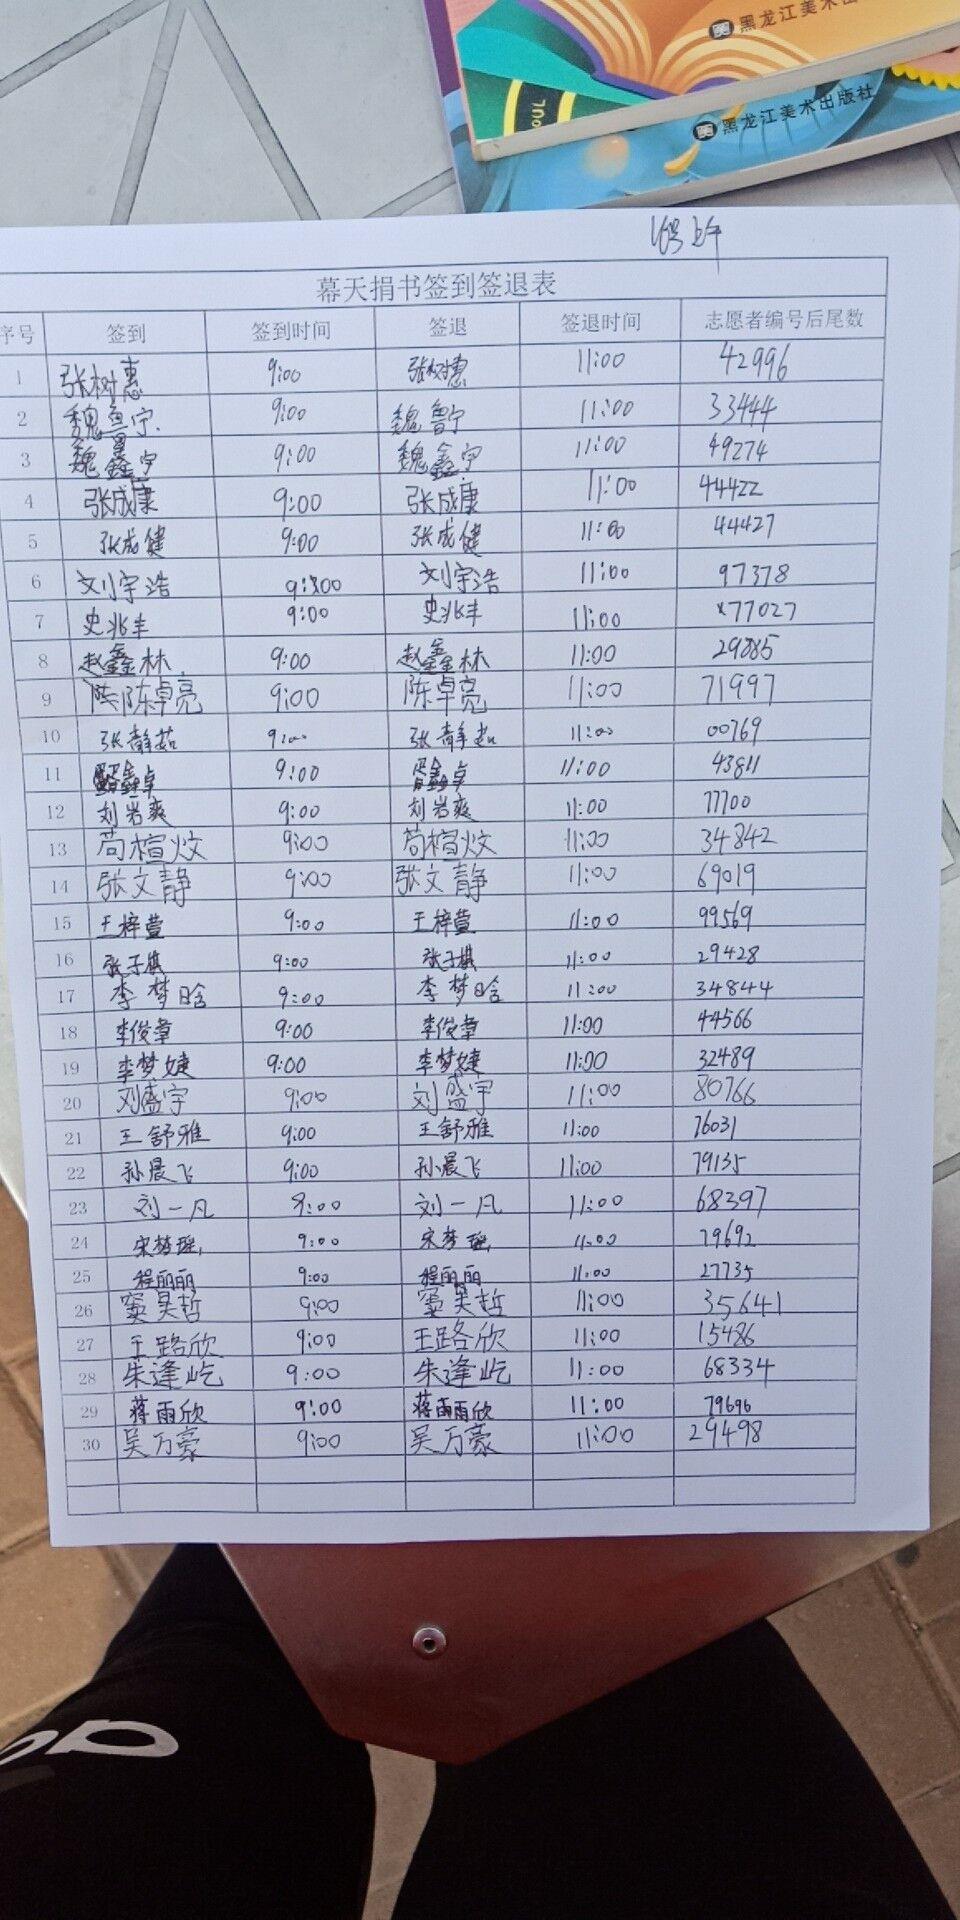 黑龙江美术出
SOUL
黑龙江美术出版社
16号上午
幕天捐书签到签退表
序号 签到 签到时间 签退 签退时间 志愿者编号后尾数
1 张树惠 9:00 张树惠 11:00 42996
2 魏鲁宁 9:00 魏鲁宁 11:00 33444
3 魏鑫宇 9:00 魏鑫宇 11:00 49274
4 张成康 9:00 张成康 11:00 44422
5 张成健 9:00 张成健 11:00 44427
6 刘宇浩 9:00 刘宇浩 11:00 97378
7 史兆丰 9:00 史兆丰 11:00 77027
8 赵鑫林 9:00 赵鑫林 11:00 29885
9 陈卓亮 9:00 陈卓亮 11:00 71997
10 张静茹 9:00 张静茹 11:00 00769
11 9:00 11:00 43811
12 刘岩爽 9:00 刘岩爽 11:00 77700
13 苟楦炆 9:00 苟楦炆 11:00 34842
14 张文静 9:00 张文静 11:00 69019
15 王梓萱 9:00 王梓萱 11:00 99569
16 张子棋 9:00 张子棋 11:00 29428
17 李梦晗 9:00 李梦晗 11:00 34844
18 李俊章 9:00 李俊章 11:00 44566
19 李梦婕 9:00 李梦婕 11:00 32489
20 刘盛宇 9:00 刘盛宇 11:00 80766
21 王舒雅 9:00 王舒雅 11:00 76031
22 孙晨飞 9:00 孙晨飞 11:00 79135
23 刘一凡 9:00 刘一凡 11:00 68397
24 宋梦瑶 9:00 宋梦瑶 11:00 79692
25 程丽丽 9:00 程丽丽 11:00 27735
26 窦昊哲 9:00 窦昊哲 11:00 35641
27 王路欣 9:00 王路欣 11:00 15486
28 朱逢屹 9:00 朱逢屹 11:00 68334
29 蒋雨欣 9:00 蒋雨欣 11:00 79696
30 吴万豪 9:00 吴万豪 11:00 29498